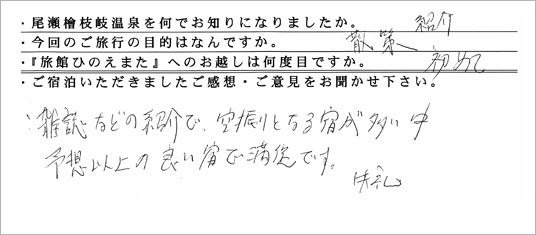 ・尾瀬檜枝岐温泉を何でお知りになりましたか。 紹介
・今回のご旅行の目的はなんですか。 散策
・『旅館ひのえまた』へのお越しは何度目ですか。 初めて
・ご宿泊いただきましたご感想・ご意見をお聞かせ下さい。
雑誌などの紹介で、空振りとなる宿が多い中
予想以上の良い宿で満足です。
失礼